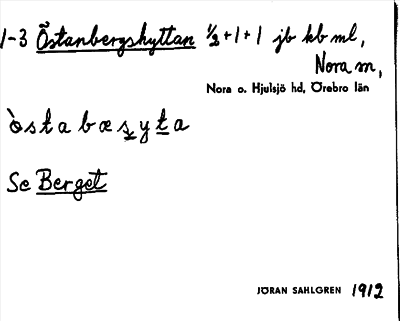 1-3 Östanbergshyttan ½+1+1 jb kb ml,
Nora sn,
Nora o. Hjulsjö hd, Örebro län
òstabæʂyta
Se Berget
JÖRAN SAHLGREN 1912